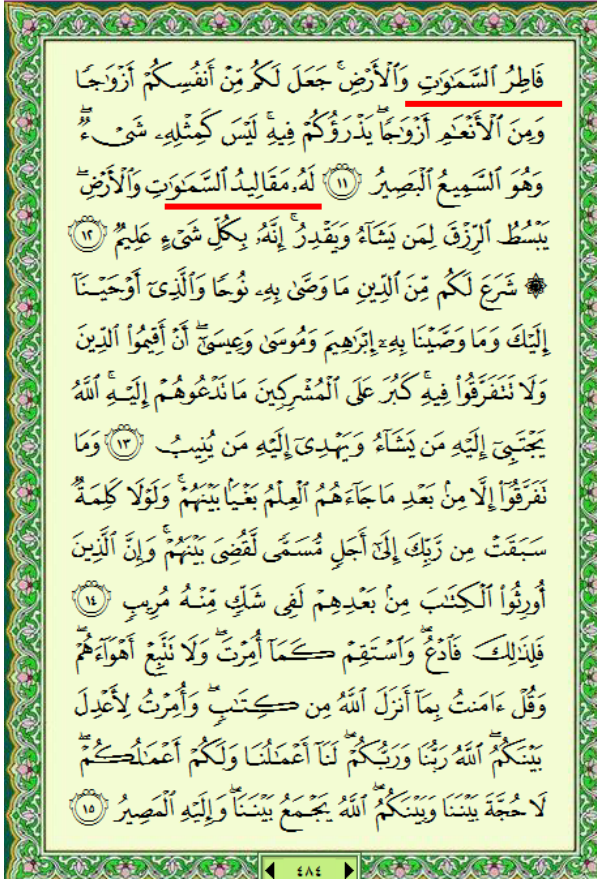 فَاطِرُ ٱلسَّمَٰوَٰتِ وَٱلۡأَرۡضِۚ جَعَلَ لَكُم مِّنۡ أَنفُسِكُمۡ أَزۡوَٰجٗا
وَمِنَ ٱلۡأَنۡعَٰمِ أَزۡوَٰجٗا يَذۡرَؤُكُمۡ فِيهِۚ لَيۡسَ كَمِثۡلِهِۦ شَيۡءٞۖ
وَهُوَ ٱلسَّمِيعُ ٱلۡبَصِيرُ ١١ لَهُۥ مَقَالِيدُ ٱلسَّمَٰوَٰتِ وَٱلۡأَرۡضِۖ
يَبۡسُطُ ٱلرِّزۡقَ لِمَن يَشَآءُ وَيَقۡدِرُۚ إِنَّهُۥ بِكُلِّ شَيۡءٍ عَلِيمٞ ١٢
۞ شَرَعَ لَكُم مِّنَ ٱلدِّينِ مَا وَصَّىٰ بِهِۦ نُوحٗا وَٱلَّذِيٓ أَوۡحَيۡنَآ
إِلَيۡكَ وَمَا وَصَّيۡنَا بِهِۦٓ إِبۡرَٰهِيمَ وَمُوسَىٰ وَعِيسَىٰٓۖ أَنۡ أَقِيمُواْ ٱلدِّينَ
وَلَا تَتَفَرَّقُواْ فِيهِۚ كَبُرَ عَلَى ٱلۡمُشۡرِكِينَ مَا تَدۡعُوهُمۡ إِلَيۡهِۚ ٱللَّهُ
يَجۡتَبِيٓ إِلَيۡهِ مَن يَشَآءُ وَيَهۡدِيٓ إِلَيۡهِ مَن يُنِيبُ ١٣ وَمَا
تَفَرَّقُوٓاْ إِلَّا مِنۢ بَعۡدِ مَا جَآءَهُمُ ٱلۡعِلۡمُ بَغۡيَۢا بَيۡنَهُمۡۚ وَلَوۡلَا كَلِمَةٞ
سَبَقَتۡ مِن رَّبِّكَ إِلَىٰٓ أَجَلٖ مُّسَمّٗى لَّقُضِيَ بَيۡنَهُمۡۚ وَإِنَّ ٱلَّذِينَ
أُورِثُواْ ٱلۡكِتَٰبَ مِنۢ بَعۡدِهِمۡ لَفِي شَكّٖ مِّنۡهُ مُرِيبٖ ١٤
فَلِذَٰلِكَ فَٱدۡعُۖ وَٱسۡتَقِمۡ كَمَآ أُمِرۡتَۖ وَلَا تَتَّبِعۡ أَهۡوَآءَهُمۡۖ
وَقُلۡ ءَامَنتُ بِمَآ أَنزَلَ ٱللَّهُ مِن كِتَٰبٖۖ وَأُمِرۡتُ لِأَعۡدِلَ
بَيۡنَكُمُۖ ٱللَّهُ رَبُّنَا وَرَبُّكُمۡۖ لَنَآ أَعۡمَٰلُنَا وَلَكُمۡ أَعۡمَٰلُكُمۡۖ
لَا حُجَّةَ بَيۡنَنَا وَبَيۡنَكُمُۖ ٱللَّهُ يَجۡمَعُ بَيۡنَنَاۖ وَإِلَيۡهِ ٱلۡمَصِيرُ ١٥
٤٨٤